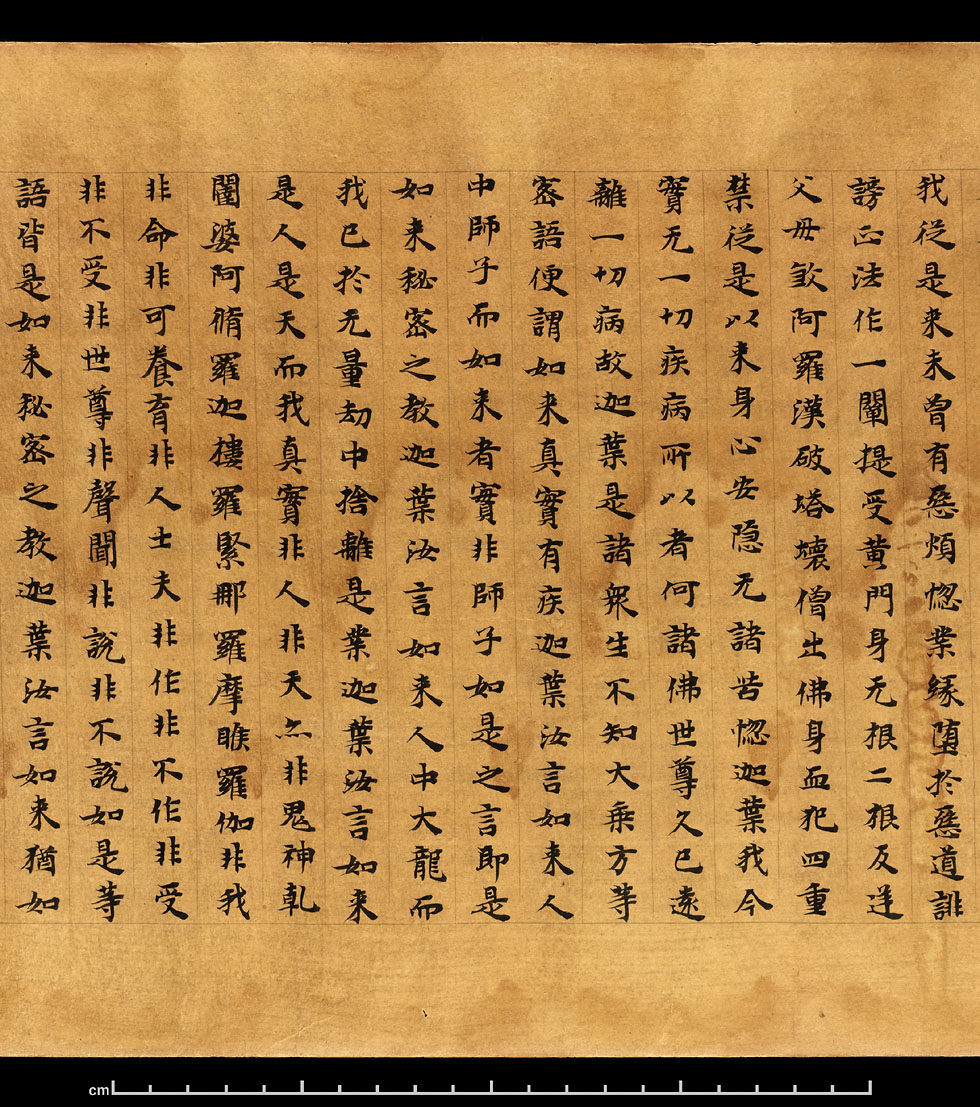 我従是来未曾有惡煩惚業縁堕於惡道誹
謗正法作一闡提受黄門身无根二根反逆
父母煞阿羅漢破塔壊僧出佛身血犯四重
禁従是以来身心安隠无諸苦惚迦葉我今
實无一切疾病所以者何諸佛世尊久已遠
離一切病故迦葉是諸衆生不知大乗方等
密語便謂如来真實有疾迦葉汝言如来人
中師子而如来者實非師子如是之言即是
如来秘密之教迦葉汝言如来人中大龍而
我已於无量劫中捨離是業迦葉汝言如来
是人是天而我真實非人非天亦非鬼神乹
闥婆阿脩羅迦樓羅緊那羅摩睺羅伽非我
非命非可養育非人士夫非作非不作非受
非不受非世尊非聲聞非説非不説如是等
語皆是如来秘密之教迦葉汝言如来猶如
cm